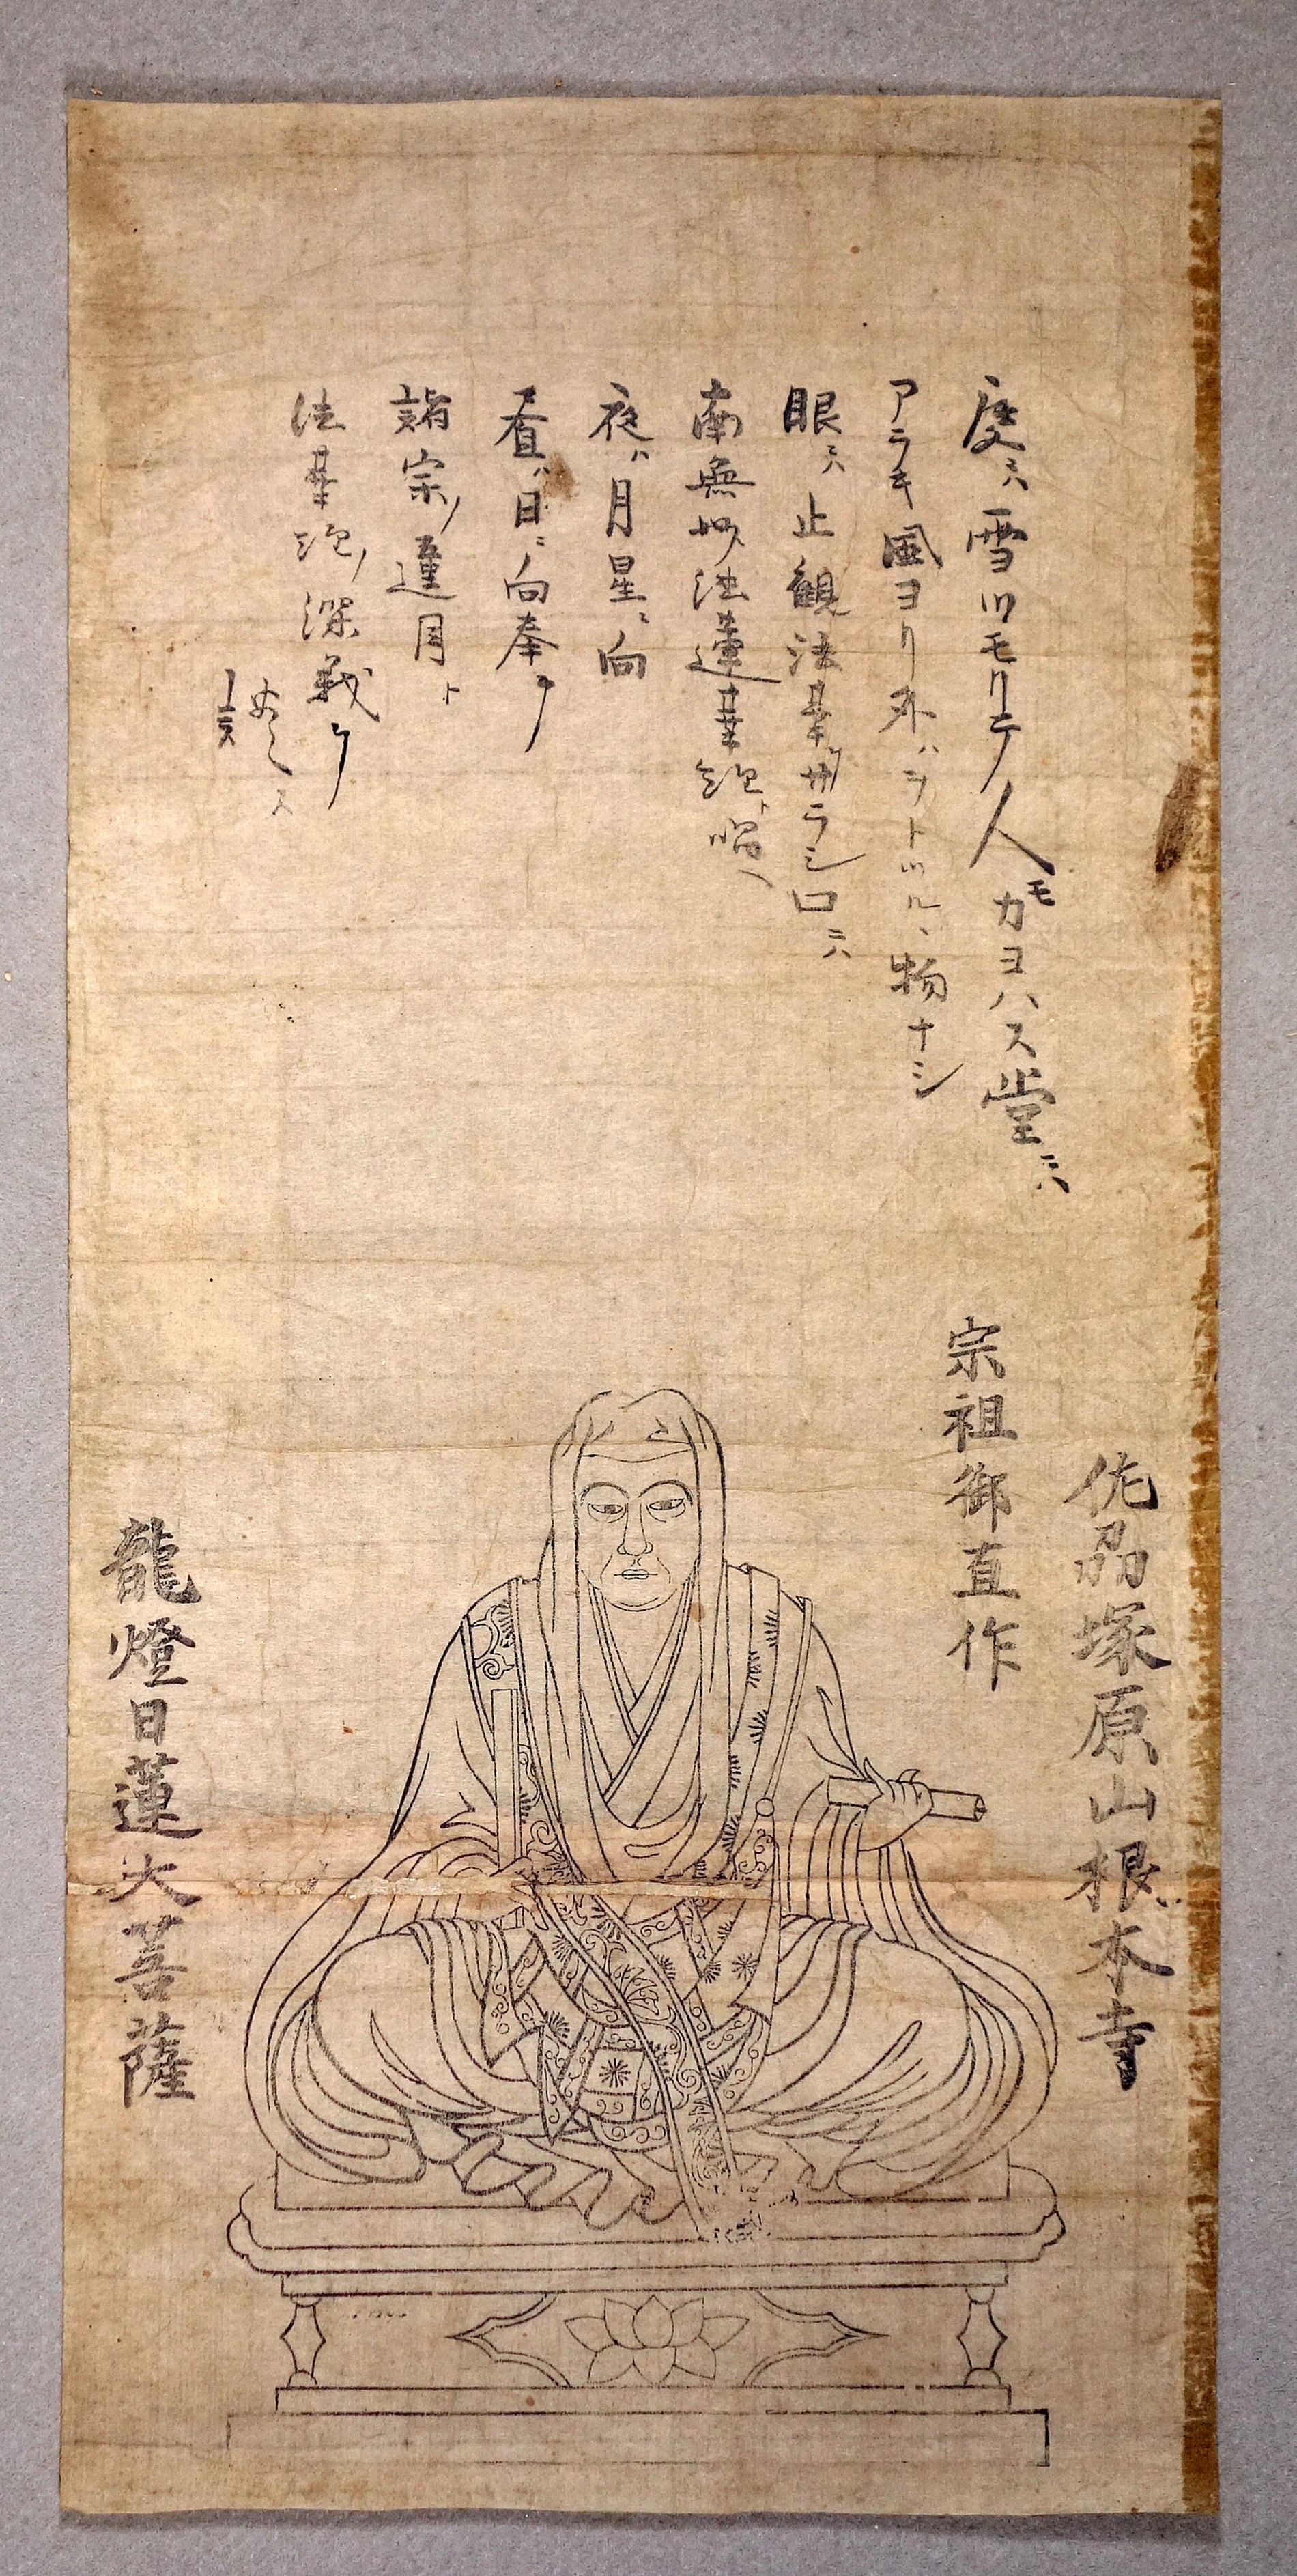 庭ニハ雪ツモリテ人モカヨハス堂ニハ
アラキ風ヨリ外ハヲトツルヽ物ナシ
眼ニハ止観法華ヲサラシ口ニハ
南無妙法蓮華経ト唱ヘ
夜ハ月星ニ向
昼ハ日ニ向奉テ
諸宗ノ違目ト
法華経ノ深義ヲ
談ス
宗祖御直作
佐刕塚原山根本寺
龍燈日蓮大菩薩